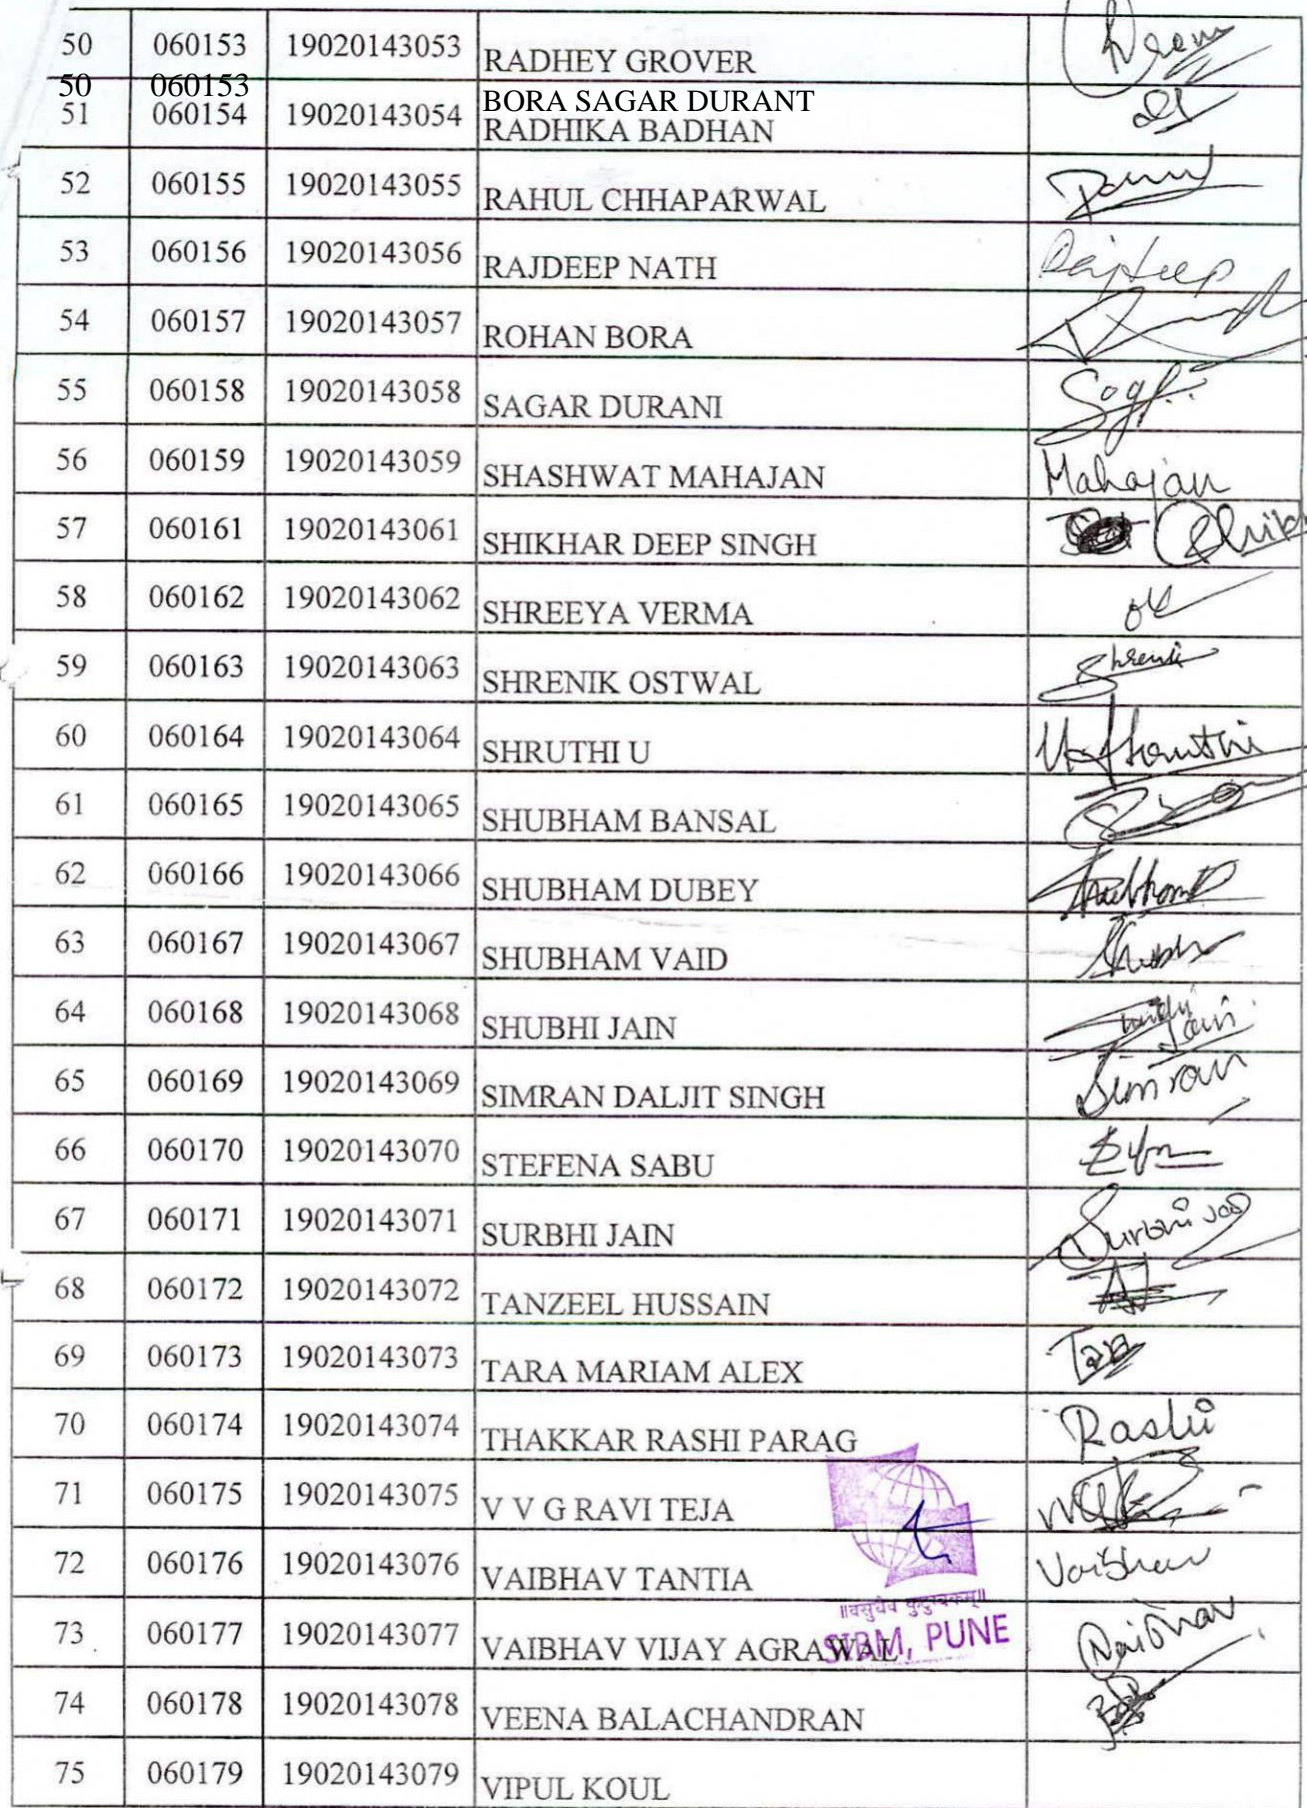 50 060153 19020143053 RADHEY GROVER
50 060153 BORA SAGAR DURANT
51 060154 19020143054 RADHIKA BADHAN
52 060155 19020143055 RAHUL CHHAPARWAL
53 060156 19020143056 RAJDEEP NATH Rajdeep
54 060157 19020143057 ROHAN BORA
55 060158 19020143058 SAGAR DURANI
56 060159 19020143059 SHASHWAT MAHAJAN Mahajan
57 060161 19020143061 SHIKHAR DEEP SINGH
58 060162 19020143062 SHREEYA VERMA
59 060163 19020143063 SHRENIK OSTWAL Shrenik
60 060164 19020143064 SHRUTHI U
61 060165 19020143065 SHUBHAM BANSAL
62 060166 19020143066 SHUBHAM DUBEY
63 060167 19020143067 SHUBHAM VAID
64 060168 19020143068 SHUBHI JAIN
65 060169 19020143069 SIMRAN DALJIT SINGH Simran
66 060170 19020143070 STEFENA SABU
67 060171 19020143071 SURBHI JAIN
68 060172 19020143072 TANZEEL HUSSAIN
69 060173 19020143073 TARA MARIAM ALEX Tara
70 060174 19020143074 THAKKAR RASHI PARAG Rashi
71 060175 19020143075 V V G RAVI TEJA
72 060176 19020143076 VAIBHAV TANTIA Vaibhav
॥वसुधैव कुटुम्बकम्॥
SIBM, PUNE
73 060177 19020143077 VAIBHAV VIJAY AGRAWAL Vaibhav
74 060178 19020143078 VEENA BALACHANDRAN
75 060179 19020143079 VIPUL KOUL